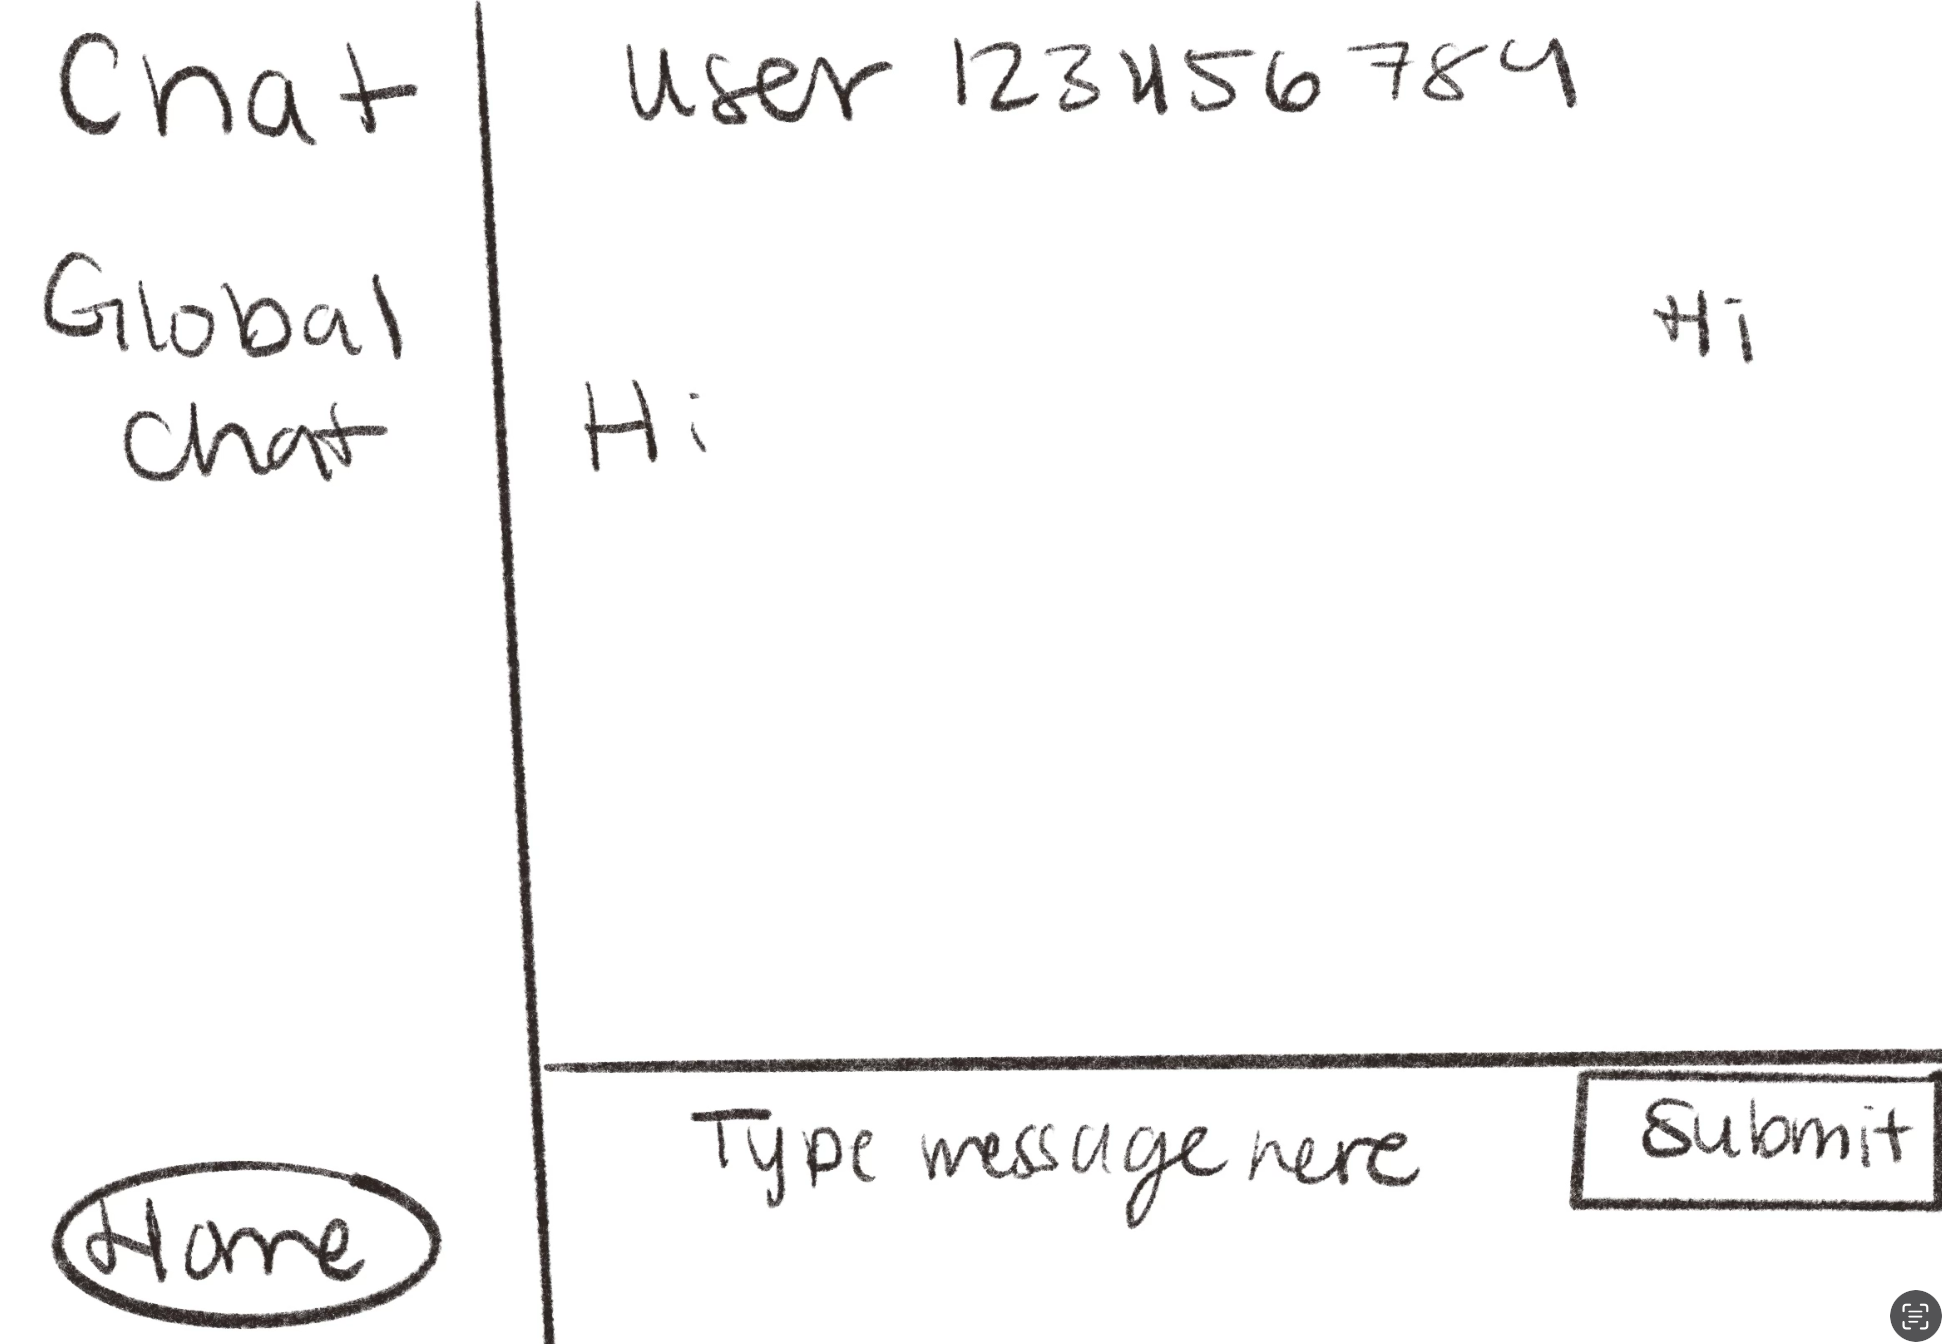 Chat
Global
chat
Home
user 123456789
Hi
Hi
Type message here
Submit